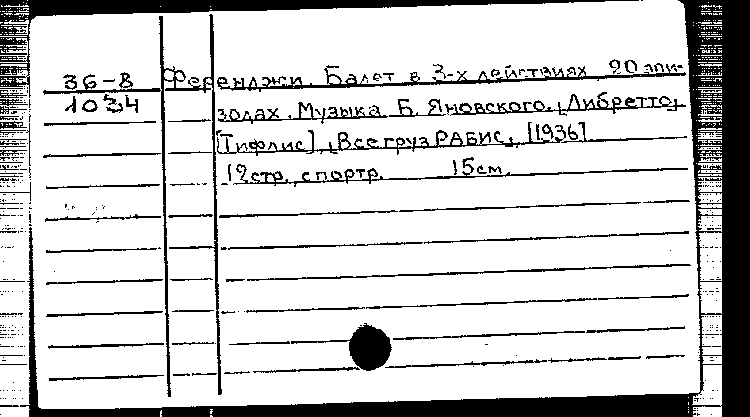 36-8 Ференджи. Балет в 3-х действиях, 20 эпи-
1034 зодах. Музыка Б. Яновского. [Либретто]
[Тифлис], [ВсегрузРАБИС], [1936]
12 стр. с портр. 15 см.